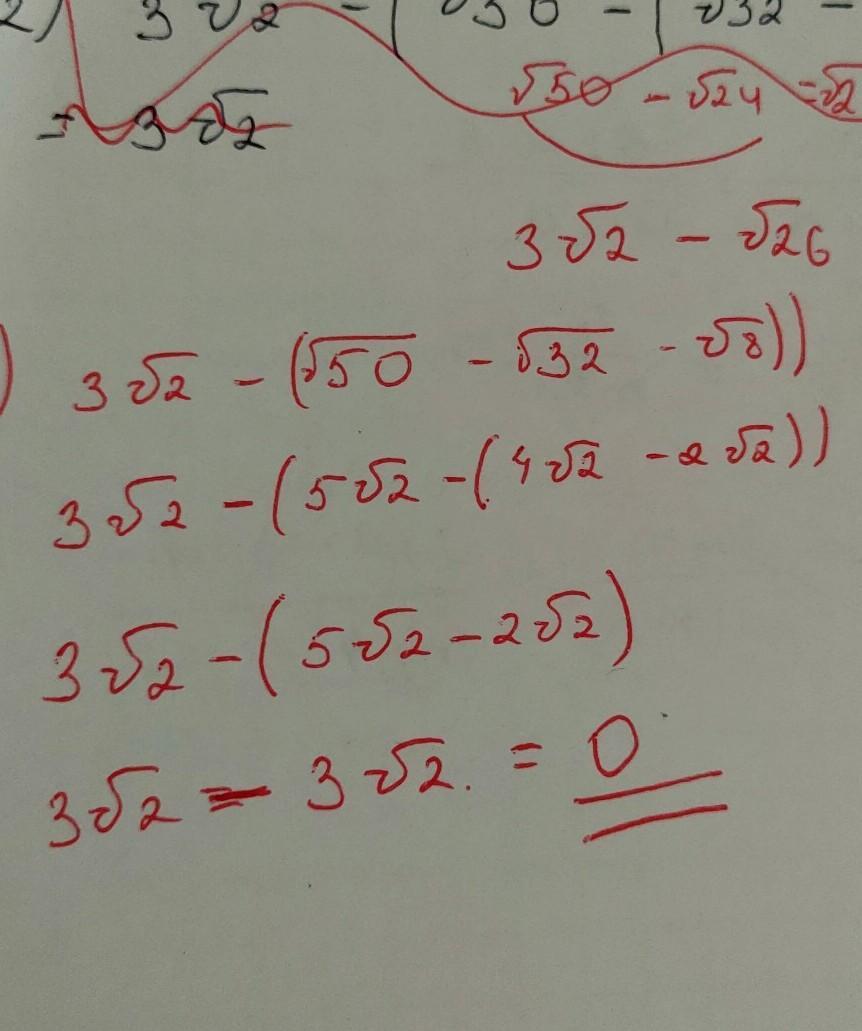 2) 3√2 - ( √50 - ( √32 -
√50 - √24 = √2
= 3√2
3√2 - √26
) 3√2 - (√50 - √32 - √8))
3√2 - (5√2 - (4√2 - 2√2))
3√2 - (5√2 - 2√2)
3√2 - 3√2. = 0